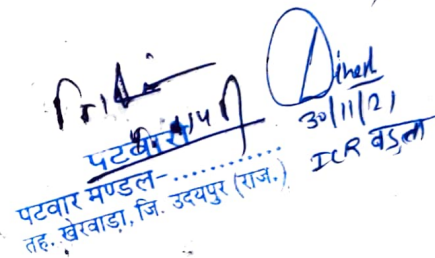 Dinesh
30/11/21
ILR
पटवारी
पटवार मण्डल-............
तह. खेरवाड़ा, जि. उदयपुर (राज.)